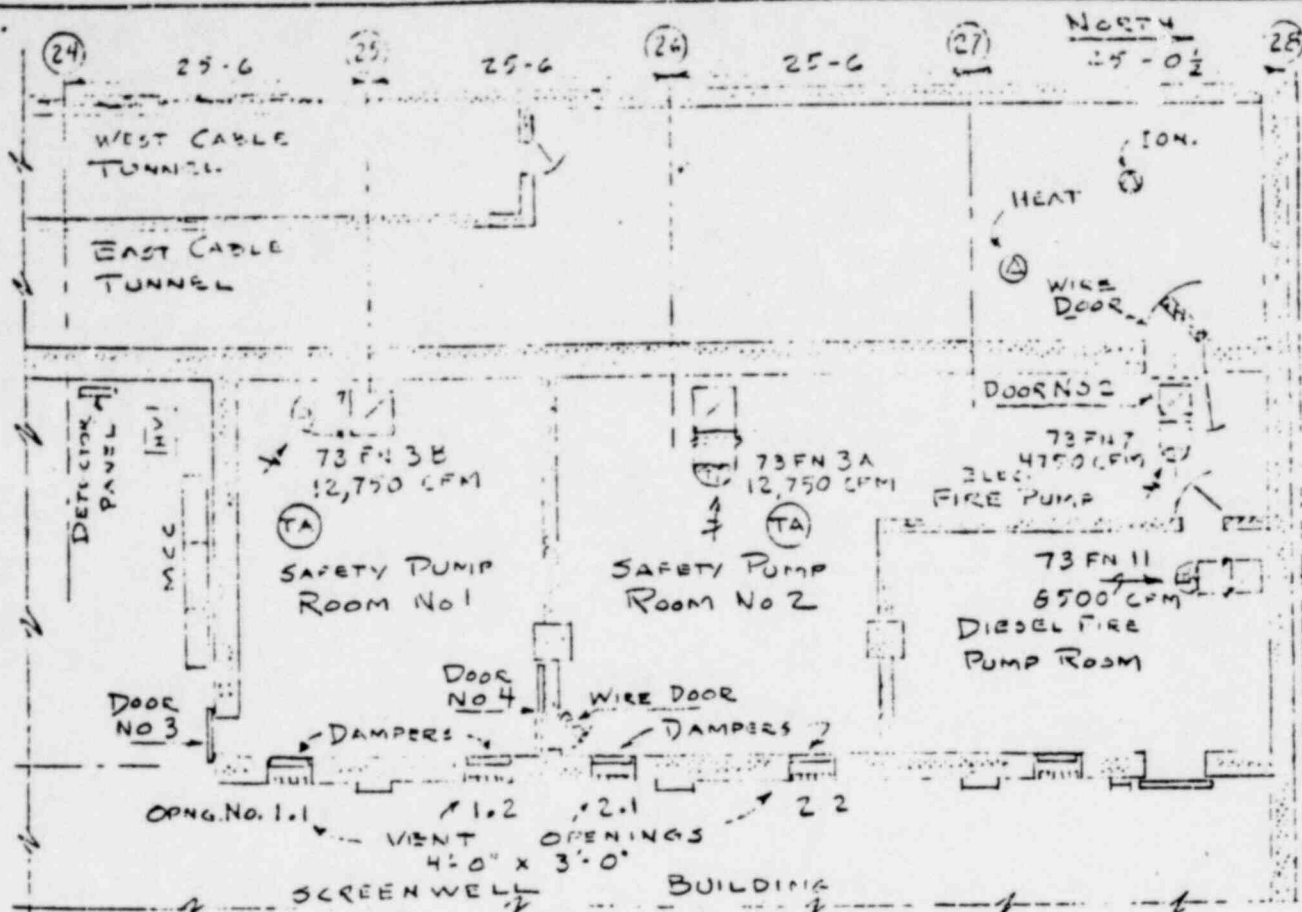 24
25-6
25
25-6
26
25-6
27
NORTH
28
WEST CABLE
TUNNEL
EAST CABLE
TUNNEL
ION.
HEAT
WIRE
DOOR
DOOR NO 2
DETECTOR
PANEL
HV
MCC
73 FN 3B
12,750 CFM
TA
SAFETY PUMP
ROOM No 1
73 FN 3A
12,750 CFM
TA
SAFETY PUMP
ROOM No 2
73 FN 7
4750 CFM
ELEC.
FIRE PUMP
73 FN 11
6500 CFM
DIESEL FIRE
PUMP ROOM
DOOR
NO 3
DAMPERS
DOOR
NO 4
WIRE DOOR
DAMPERS
OPNG. NO. 1.1
1.2
2.1
2 2
VENT OPENINGS
4'-0" x 3'-0"
SCREENWELL BUILDING